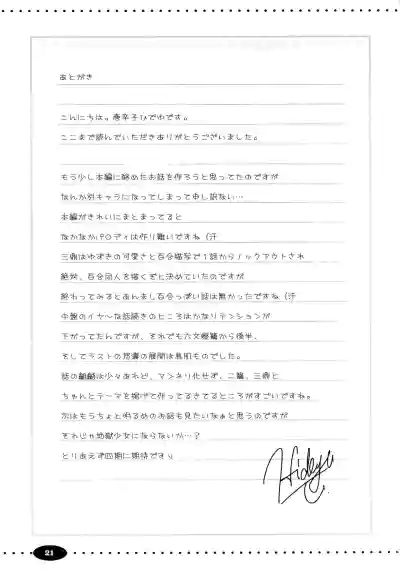 あとがき
こんにちは。唐辛子ひでゆです。
ここまで読んでいただきありがとうございました。
もう少し本編に絡めたお話を作ろうと思ってたのですが
なんか別キャラになってしまって申し訳ない…
本編がきれいにまとまってると
なかなかパロディは作り難いですね(汗
三鼎はゆずきの可愛さと百合描写で1話からノックアウトされ
絶対、百合同人を描くぞと決めていたのですが
終わってみるとあんまし百合っぽい話は無かったですね(汗
中盤のイヤ~な話続きのところはかなりテンションが
下がってたんですが、それでも六文燈籠から後半、
そしてラストの怒濤の展開は鳥肌ものでした。
話の齟齬は少々あれど、マンネリ化せず、二籠、三鼎と
ちゃんとテーマを掲げて作ってるきてるところがすごいですね。
次はもうちょと明るめのお話も見たいなぁと思うのですが
それじゃ地獄少女にならないか…?
とりあえず四期に期待ですり
Hideyu
21